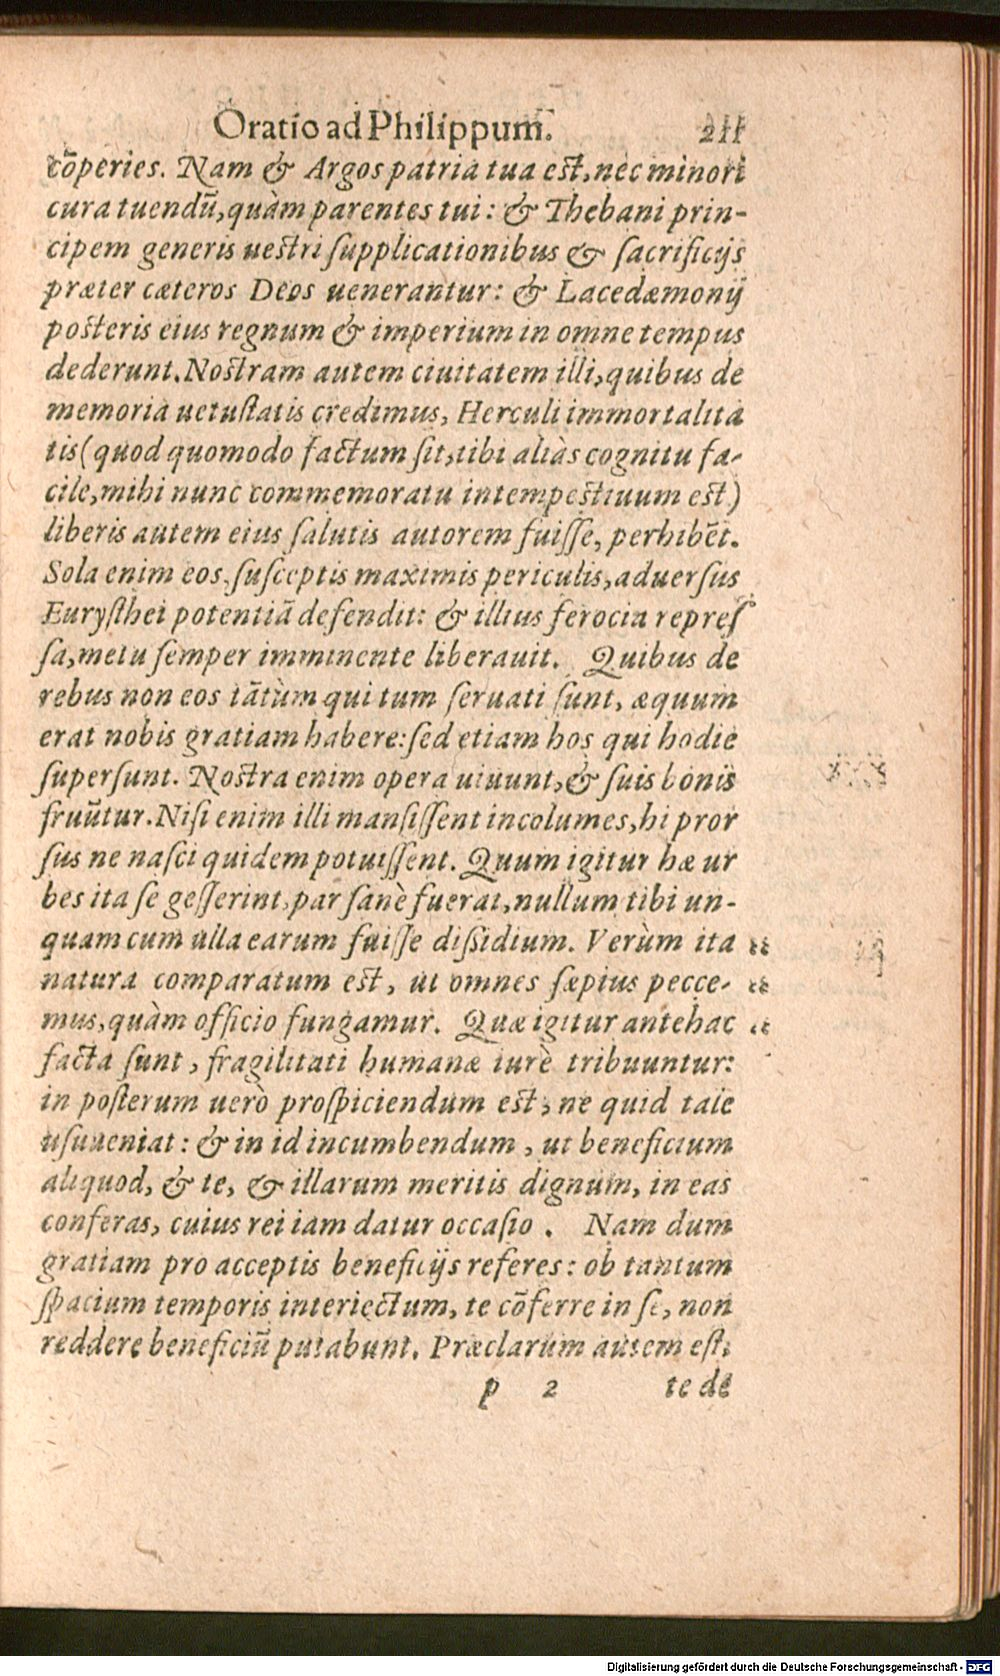 Oratio ad Philippum. 211
cōperies. Nam & Argos patria tua est, nec minori
cura tuendū, quàm parentes tui: & Thebani prin-
cipem generis uestri ſupplicationibus & ſacrificijs
præter cæteros Deos uenerantur: & Lacedæmonij
posteris eius regnum & imperium in omne tempus
dederunt. Nostram autem ciuitatem illi, quibus de
memoria uetuſtatis credimus, Herculi immortalita
tis (quod quomodo factum ſit, tibi aliàs cognitu fa-
cile, mihi nunc commemoratu intempestiuum est)
liberis autem eius ſalutis autorem fuiſſe, perhibēt.
Sola enim eos, ſuſceptis maximis periculis, aduerſus
Euryſthei potentiā defendit: & illius ferocia repreſ
ſa, metu ſemper imminente liberauit. Quibus de
rebus non eos tātùm qui tum ſeruati ſunt, æquum
erat nobis gratiam habere: ſed etiam hos qui hodie
ſuperſunt. Nostra enim opera uiuunt, & ſuis bonis
fruūtur. Niſi enim illi manſiſſent incolumes, hi pror
ſus ne naſci quidem potuiſſent. Quum igitur hæ ur
bes ita ſe geſſerint, par ſanè fuerat, nullum tibi un-
quam cum ulla earum fuiſſe diſſidium. Verùm ita „
natura comparatum est, ut omnes ſæpius pecce- „
mus, quàm officio fungamur. Quæ igitur antehac „
facta ſunt, fragilitati humanæ iurè tribuuntur:
in poſterum uerò proſpiciendum est, ne quid tale
uſuueniat: & in id incumbendum, ut beneficium
aliquod, & te, & illarum meritis dignum, in eas
conferas, cuius rei iam datur occaſio. Nam dum
gratiam pro acceptis beneficijs referes: ob tantum
ſpacium temporis interiectum, te cōferre in ſe, non
reddere beneficiū putabunt. Præclarum autem eſt,
p 2 te de
Digitalisierung gefördert durch die Deutsche Forschungsgemeinschaft - DFG